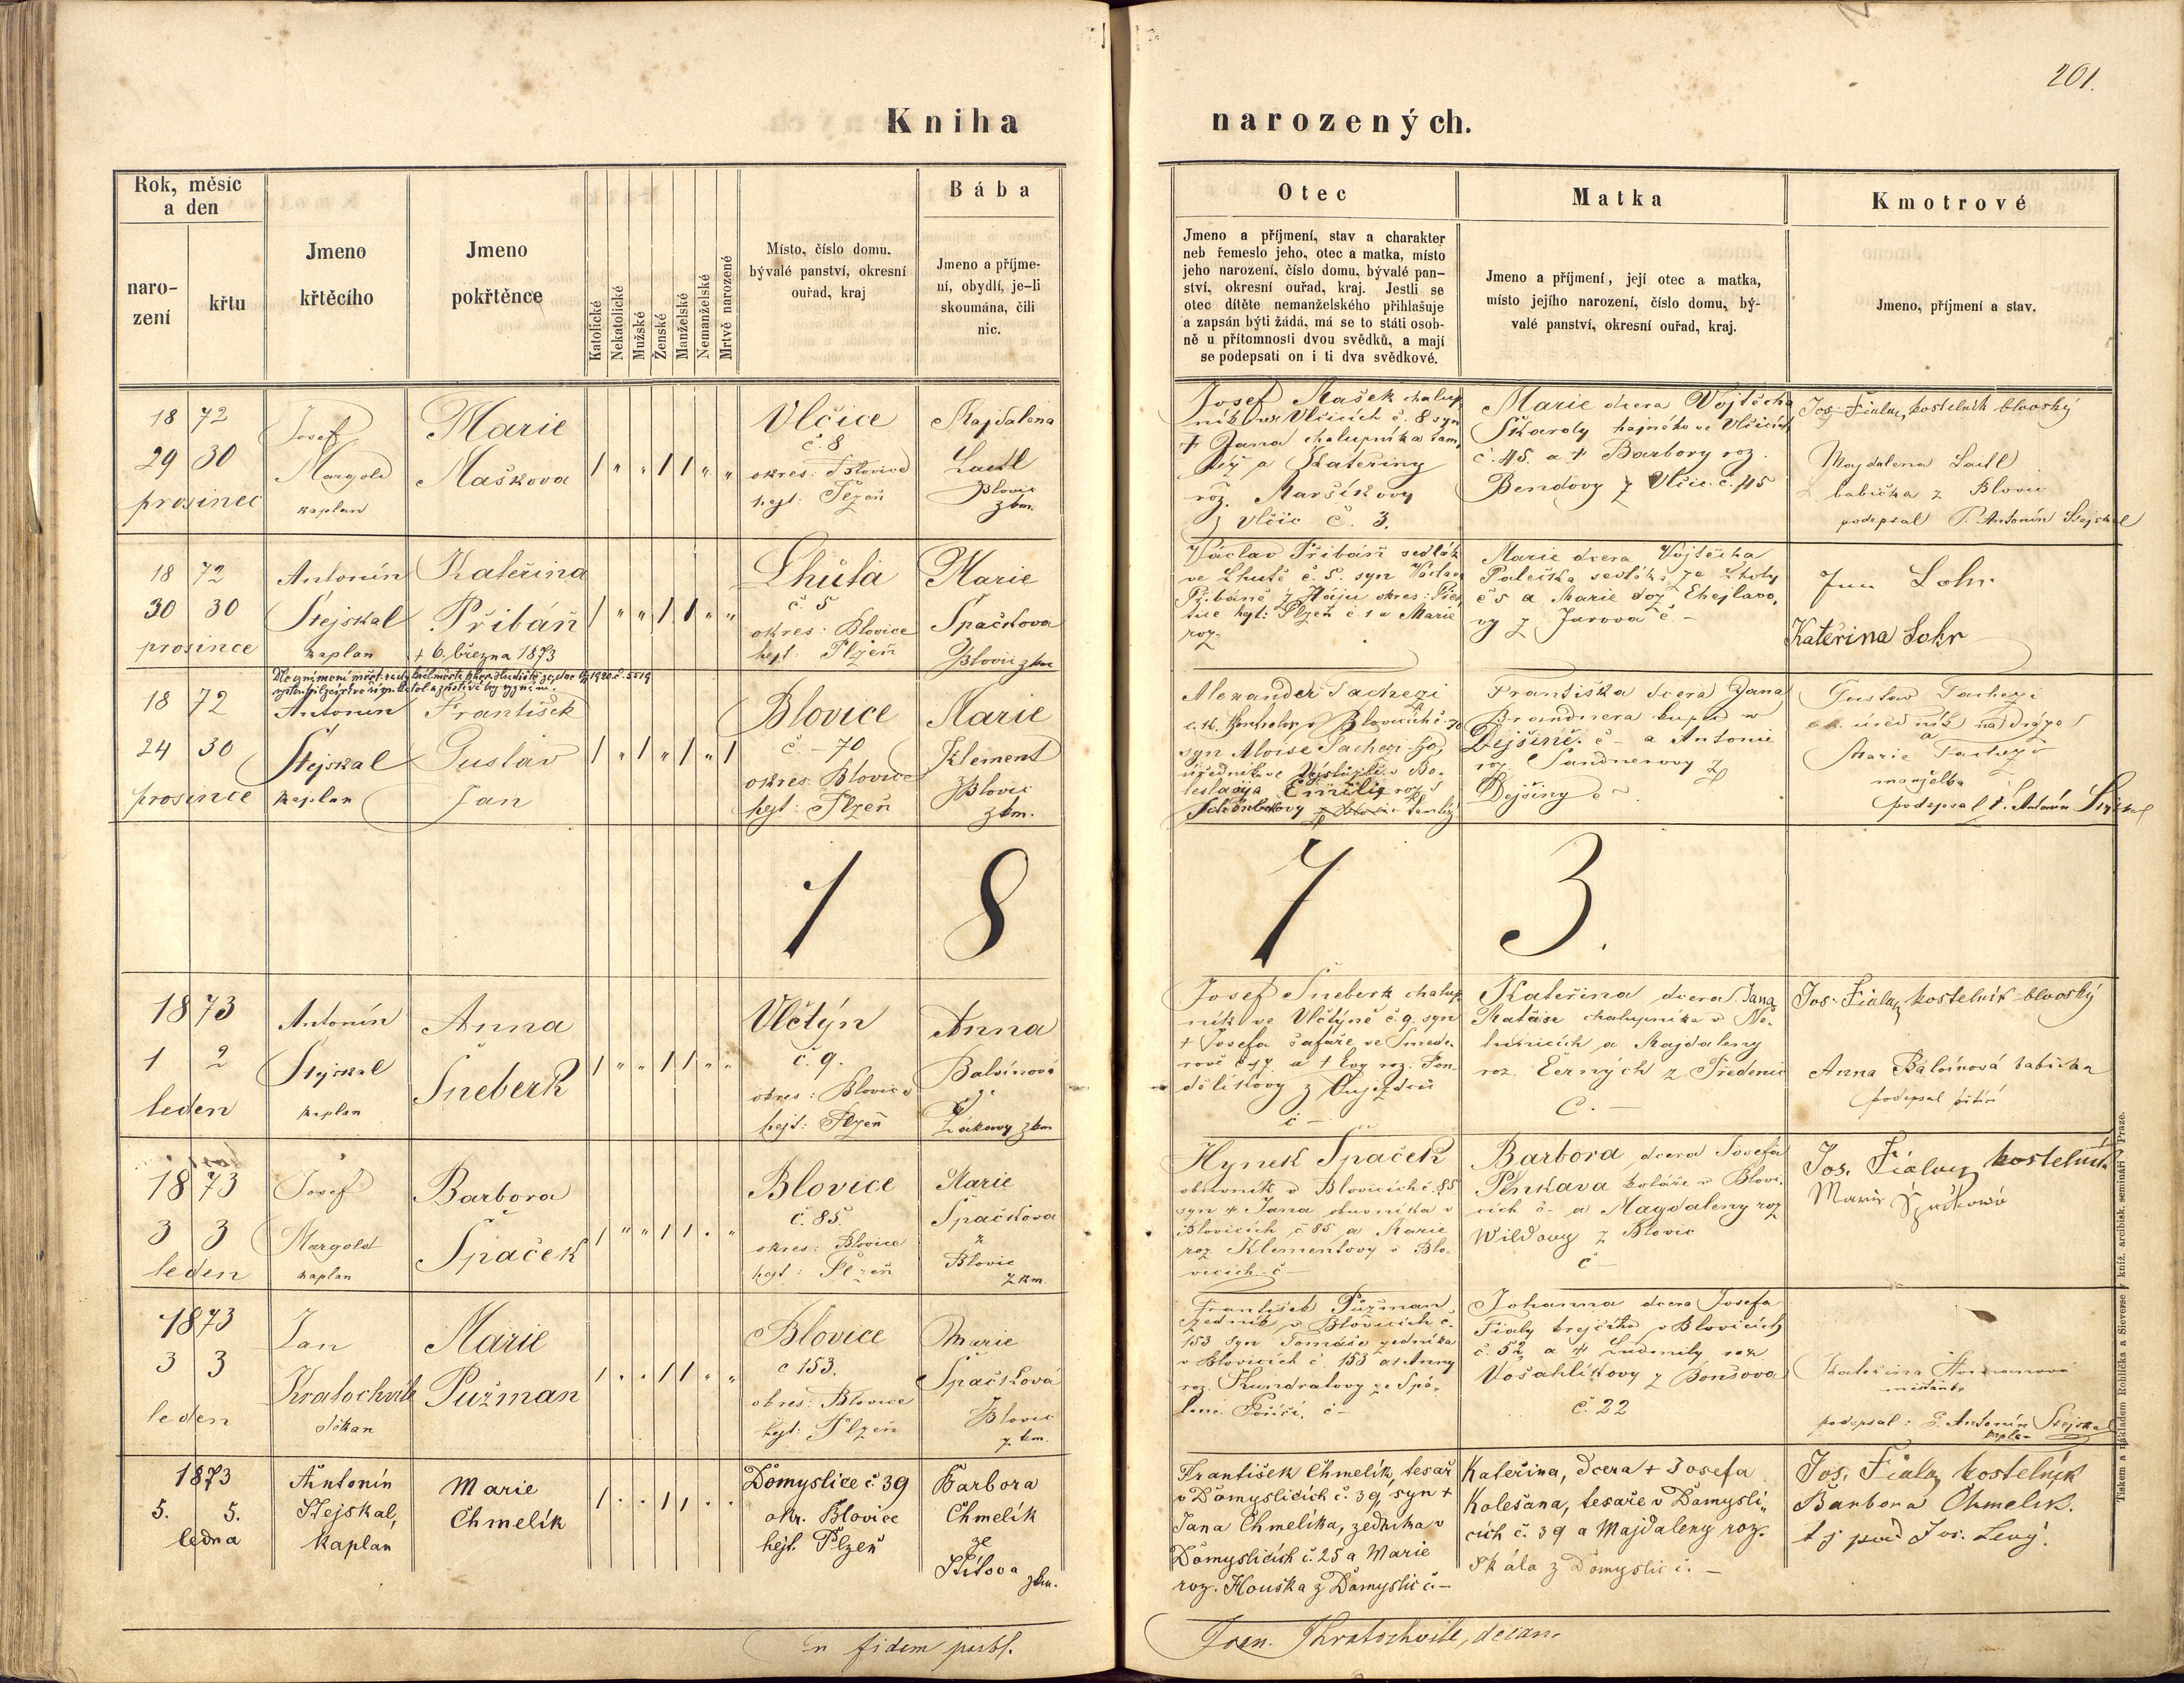 201.
Kniha narozených.
Rok, měsíc
a den
naro-
zení
křtu
Jmeno
křtěcího
Jmeno
pokřtěnce
Katolické
Nekatolické
Mužské
Ženské
Manželské
Nemanželské
Mrtvě narozené
Místo, číslo domu.
bývalé panství, okresní
ouřad, kraj
Bába
Jmeno a příjme-
ní, obydlí, je-li
skoumána, čili
nic.
Otec
Jmeno a příjmení, stav a charakter
neb řemeslo jeho, otec a matka, místo
jeho narození, číslo domu, bývalé pan-
ství, okresní ouřad, kraj. Jestli se
otec dítěte nemanželského přihlašuje
a zapsán býti žádá, má se to státi osob-
ně u přítomnosti dvou svědků, a mají
se podepsati on i ti dva svědkové.
Matka
Jmeno a příjmení, její otec a matka,
místo jejího narození, číslo domu, bý-
valé panství, okresní ouřad, kraj.
Kmotrové
Jmeno, příjmení a stav.
1872
29 30
prosinec
Josef
Margold
kaplan
Marie
Maškova
Vlčice
č. 8
okres: Blovice
hejt: Plzeň
Majdalena
Laitl
Blovic
zkm.
Josef Mašek chalup
ník ve Vlčicích č. 8 syn
+ Jana chalupníka tam
též a Kateřiny
roz. Maršíkovy
z Vlčic č. 3.
Marie dcera Vojtěcha
Škardy hajného ve Vlčicích
č. 45. a + Barbory roz.
Bendovy z Vlčic č. 45
Jos. Fiala, kostelník blovský
Majdalena Laitl
babička z Blovic
podepsal P. Antonín Stejskal
1872
30 30
prosince
Antonín
Stejskal
kaplan
Kateřina
Přibáň
+ 6. března 1873
Lhůta
č. 5
okres: Blovice
hejt: Plzeň
Marie
Špačková
Blovic zkm
Václav Přibáň sedlák
ve Lhutě č. 5. syn Václava
Přibáně z Háju okres: Přeš
tice hejt: Plzeň č 1 a Marie
roz.
Marie dcera Vojtěcha
Palečka sedláka ze Lhoty
č 5 a Marie roz Chejlavo
vy z Jarova č -
Kateřina Sokr
1872
24 30
prosince
Antonín
Stejskal
kaplan
František
Gustav
Jan
Blovice
č. - 70
okres: Blovice
hejt: Plzeň
Marie
Klement
z Blovic
zkm.
Alexander Tachezi
syn Aloise Tachezi ho
Františka dcera Jana
Brandnera kupce v
Dejšině č - a Antonie
roz. Sandnerovy z
Dejšiny č -
Gustav Tachezi
c.k. úředník na dráze
a
Marie Tachezi
manželka
podepsal P. Antonín Stejskal
1 8 7 3.
1873
1 2
leden
Antonín
Stejskal
kaplan
Anna
Šneberk
Vlčtýn
č. 9.
okres: Blovice
hejt: Plzeň
Anna
Balvínová
ze
Žákavy zkm
Josef Šneberk chalup
ník ve Vlčtýně č. 9, syn
+ Josefa šafáře ve Smede-
rově č 17 a + Evy roz. Pon
dělíkovy z Oujezdců
č -
Kateřina dcera Jana
Matase chalupníka v Ne-
tunicích a Majdaleny
roz. Černých z Předenic
č. -
Jos. Fiala, kostelník blovský
Anna Balvínová babička
1873
3 3
leden
Josef
Margold
kaplan
Barbora
Špaček
Blovice
č. 85.
okres: Blovice
hejt: Plzeň
Marie
Špačkova
z
Blovic
zkm.
Hynek Špaček
obuvník v Blovicích č. 85
syn + Jana obuvníka v
Blovicích č 85 a Marie
roz Klementovy v Blo-
vicích č -
Barbora dcera Josefa
Pinkava koláře v Blovi-
cích č. a Magdaleny roz
Wildovy z Blovic
č -
Jos. Fiala, kostelník
Marie Špačkowá
1873
3 3
leden
Jan
Kratochvíle
děkan
Marie
Pužman
Blovice
č 153.
okres: Blovice
hejt: Plzeň
Marie
Špačková
Blovic
zkm.
František Pužman
zedník v Blovicích č.
153 syn Tomáše zedníka
v Blovicích č. 153 a + Anny
roz. Kundratovy ze Spá-
lené Poříčí. č -
Johanna dcera Josefa
Fialy krejčího v Blovicích
č. 52 a + Ludmily roz
Vošahlíkovy z Bonšova
č. 22
Kateřina
podepsal: P. Antonín Stejskal
kaplan
1873
5. 5.
ledna
Antonín
Stejskal,
kaplan
Marie
Chmelík
Domyslice č. 39
okr. Blovice
hejt. Plzeň
Barbora
Chmelík
ze
Štítova zkm.
František Chmelík, tesař
v Domyslicích č. 39, syn +
Jana Chmelíka, zedníka v
Domyslicích č. 25 a Marie
roz. Houška z Domyslic č. -
Kateřina, dcera + Josefa
Kolešana, tesaře v Domysli-
cích č. 39 a Majdaleny roz.
Skála z Domyslic č. -
Jos. Fiala, kostelník
Barbora Chmelík.
Jos. Levý.
In fidem
Joan. Kratochvíle, decan.
Tiskem a nákladem Rohlíčka a Sieverse v kníž. arcibisk. semináři v Praze.